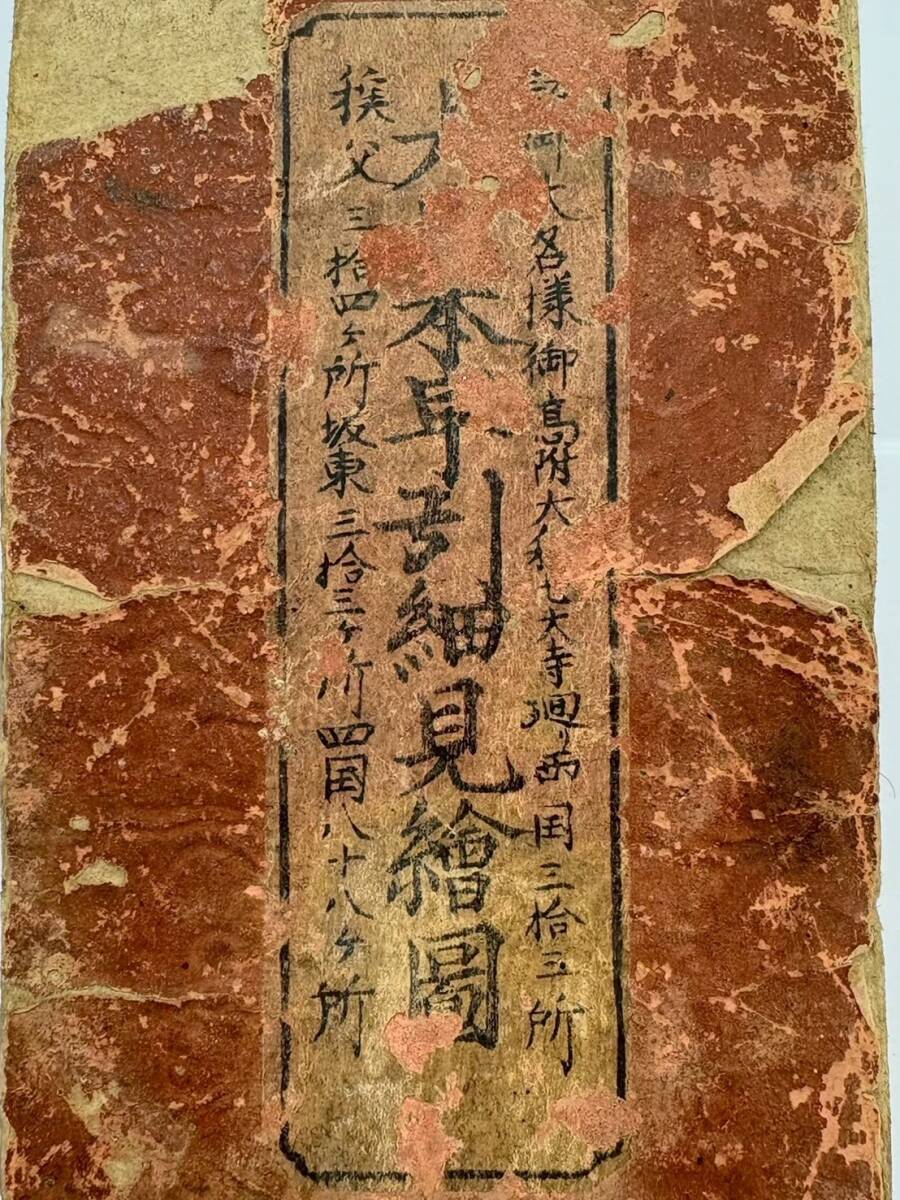 御大名様御高附大和七大寺廻り西国三拾三所
本早引細見繪圖
秩父三拾四ヶ所坂東三拾三ヶ所四国八十八ヶ所